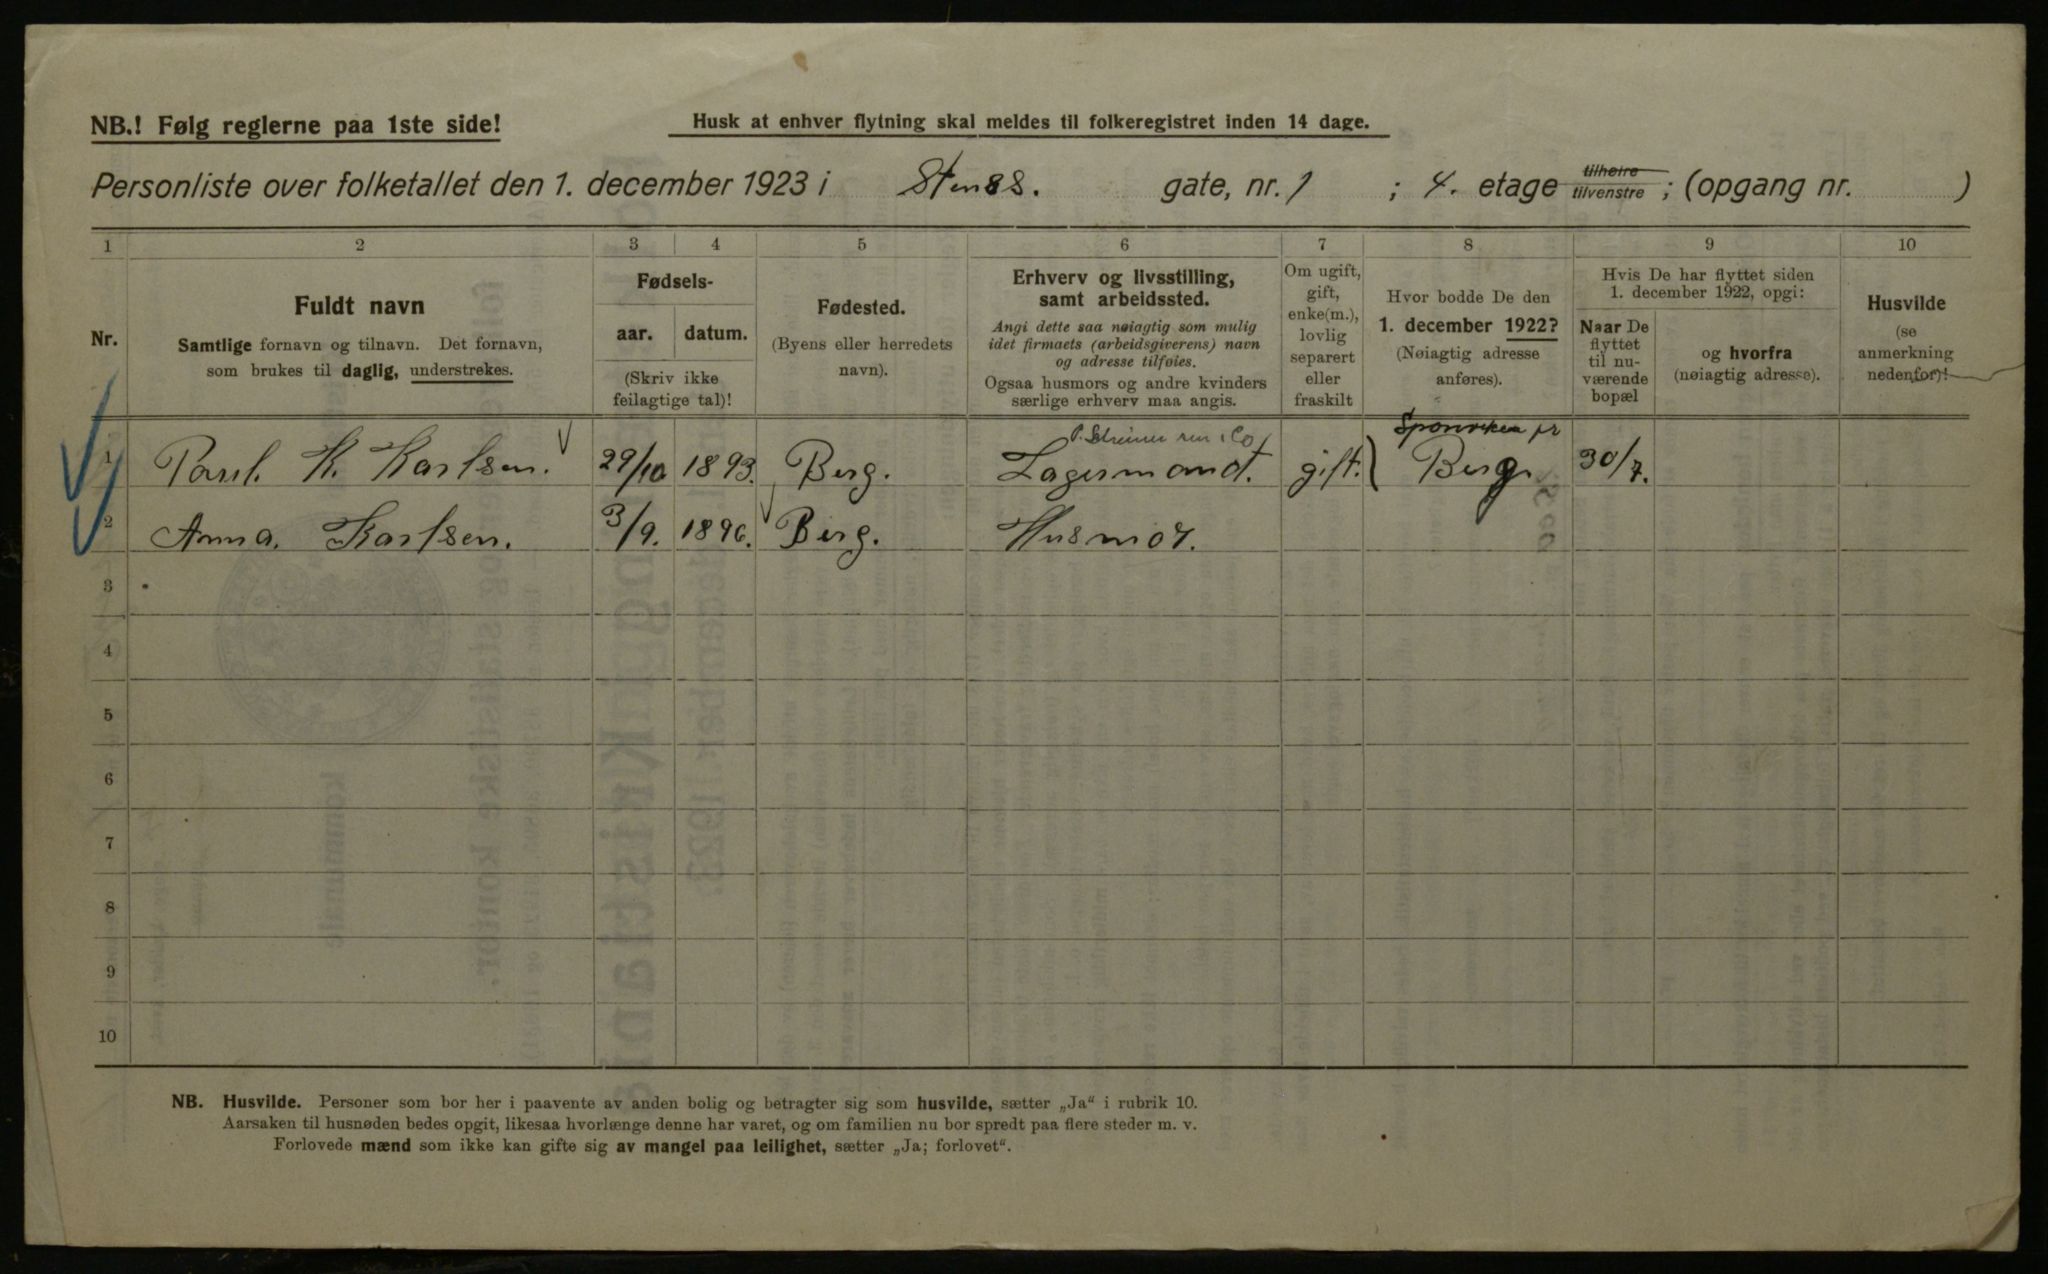 NB.! Følg reglerne paa 1ste side!
Husk at enhver flytning skal meldes til folkeregistret inden 14 dage.
Personliste over folketallet den 1. december 1923 i Stens gate, nr. 1 ; 4. etage tilhøire tilvenstre ; (opgang nr. )
1 2 3 4 5 6 7 8 9 10
Nr.
Fuldt navn
Samtlige fornavn og tilnavn. Det fornavn,
som brukes til daglig, understrekes.
Fødsels-
aar. datum.
(Skriv ikke
feilagtige tal)!
Fødested.
(Byens eller herredets
navn).
Erhverv og livsstilling,
samt arbeidssted.
Angi dette saa nøiagtig som mulig
idet firmaets (arbeidsgiverens) navn
og adresse tilføies.
Ogsaa husmors og andre kvinders
særlige erhverv maa angis.
Om ugift,
gift,
enke(m.),
lovlig
separert
eller
fraskilt
Hvor bodde De den
1. december 1922?
(Nøiagtig adresse
anføres).
Hvis De har flyttet siden
1. december 1922, opgi:
Naar De
flyttet
til nu-
værende
bopæl
og hvorfra
(nøiagtig adresse).
Husvilde
(se
anmerkning
nedenfor)!
Sponviken pr
1 Paul K. Karlsen. 29/10 1893. Berg. Lagermand. gift. Berg. 30/7.
2 Anna Karlsen. 3/9. 1896. Berg. Husmor.
3
4
5
6
7
8
9
10
NB. Husvilde. Personer som bor her i paavente av anden bolig og betragter sig som husvilde, sætter „Ja“ i rubrik 10.
Aarsaken til husnøden bedes opgit, likesaa hvorlænge denne har varet, og om familien nu bor spredt paa flere steder m. v.
Forlovede mænd som ikke kan gifte sig av mangel paa leilighet, sætter „Ja; forlovet“.